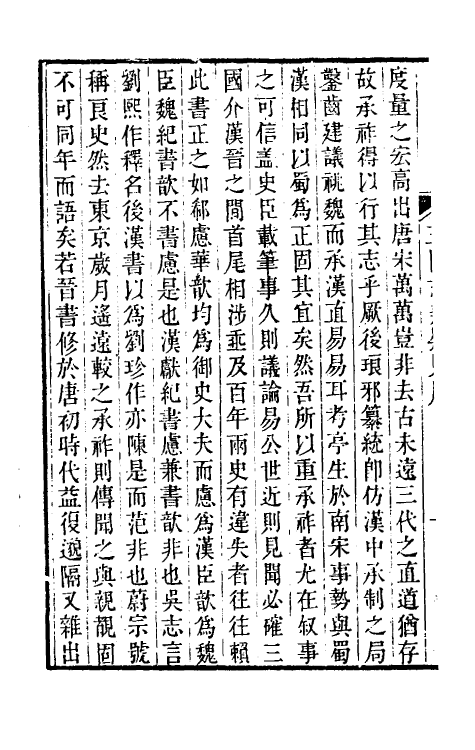 度量之宏高出唐宋萬萬豈非去古未遠三代之直道猶存
故承祚得以行其志乎厥後琅邪纂統卽仿漢中承制之局
鑿齒建議祧魏而承漢直易易耳考亭生於南宋事勢與蜀
漢相同以蜀為正固其宜矣然吾所以重承祚者尤在叙事
之可信蓋史臣載筆事久則議論易公世近則見聞必確三
國介漢晉之間首尾相涉垂及百年兩史有違失者往往賴
此書正之如郗慮華歆均為御史大夫而慮為漢臣歆為魏
臣魏紀書歆不書慮是也漢獻紀書慮兼書歆非也吳志言
劉熙作釋名後漢書以為劉珍作亦陳是而范非也蔚宗號
稱良史然去東京歲月遙遠較之承祚則傳聞之與親覩固
不可同年而語矣若晉書修於唐初時代益復遼隔又雜出